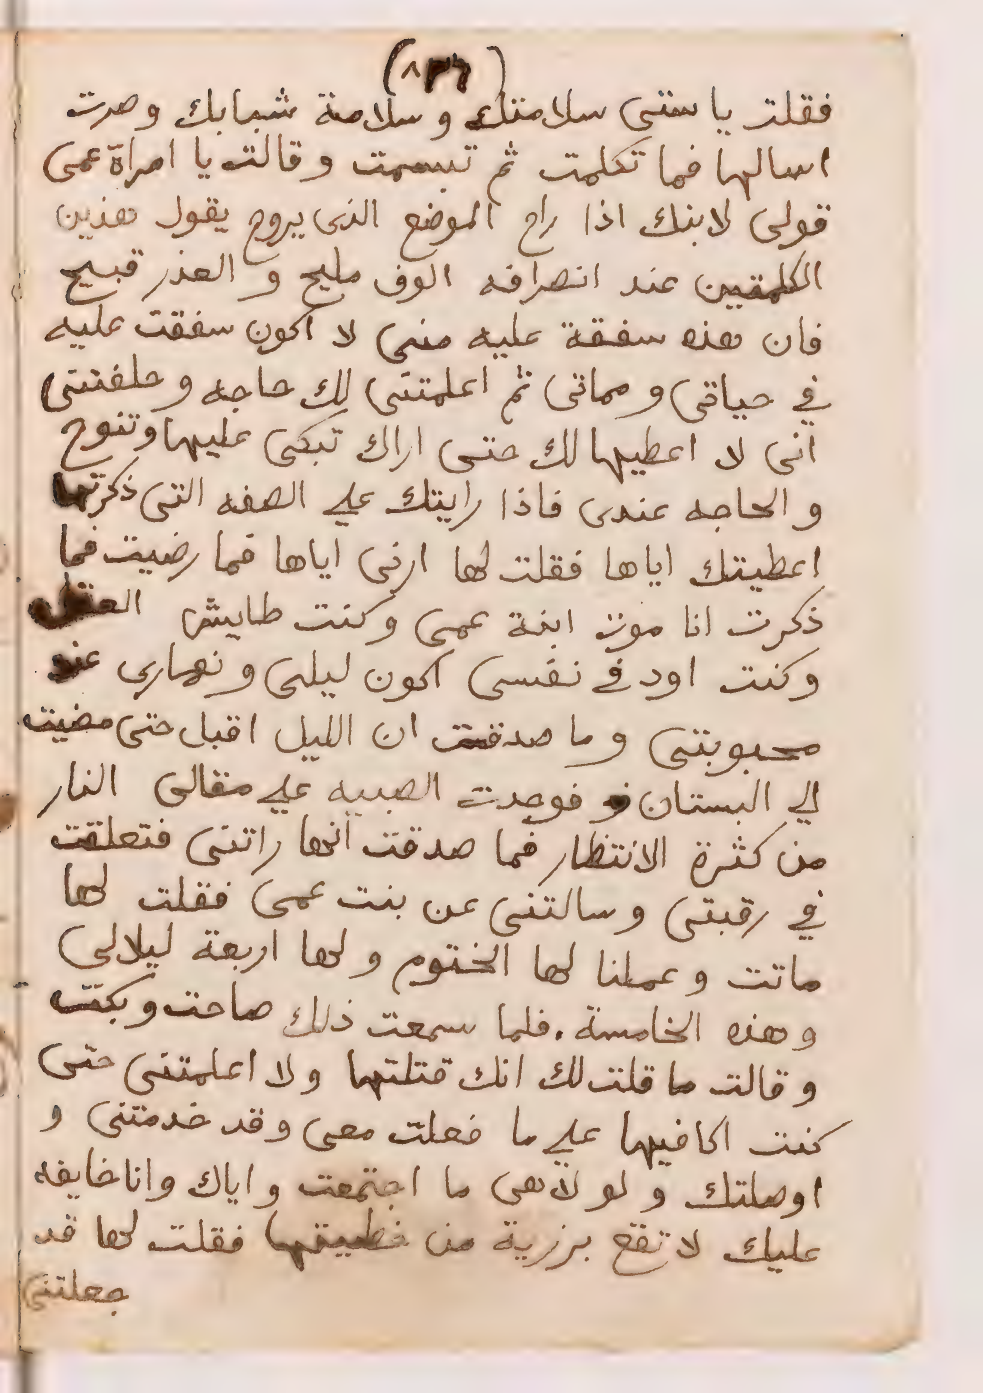 فقلت يا ستى سلامتك و سلامة شبابك وصرت
اسالها فما تكلمت ثم تبسمت وقالت يا امراة عمى
قولى لابنك اذا راح الموضع الذى يروح يقول هذين
الكلمتين عند انصرافه الوف مليح و العذر قبيح
فان هذه سفقة عليه منى لا اكون سفقت عليه
في حياتى و مماتى ثم اعلمتنى لك حاجه و حلفتنى
انى لا اعطيها لك حتى اراك تبكى عليها وتنوح
و الحاجه عندى فاذا رايتك على الصفه التى ذكرتها
اعطيتك اياها فقلت لها ارنى اياها فما رضيت فما
ذكرت انا موت ابنة عمى وكنت طايش العقل
وكنت اود في نفسى اكون ليلى و نهارى عند
محبوبتى و ما صدقت ان الليل اقبل حتى مضيت
الي البستان فوجدت الصبيه على مقالى النار
من كثرة الانتظار فما صدقت انها راتنى فتعلقت
في رقبتى و سالتنى عن بنت عمى فقلت لها
ماتت و عملنا لها الختوم و لها اربعة ليلالى
و هذه الخامسة . فلما سمعت ذلك صاحت و بكت
و قالت ما قلت لك انك قتلتها ولا اعلمتنى حتى
كنت اكافيها على ما فعلت معى وقد خدمتنى و
اوصلتك و لو لا هى ما اجتمعت و اياك وانا خايفه
عليك لا تقع برزية من خطيتها فقلت لها قد
جعلتنى